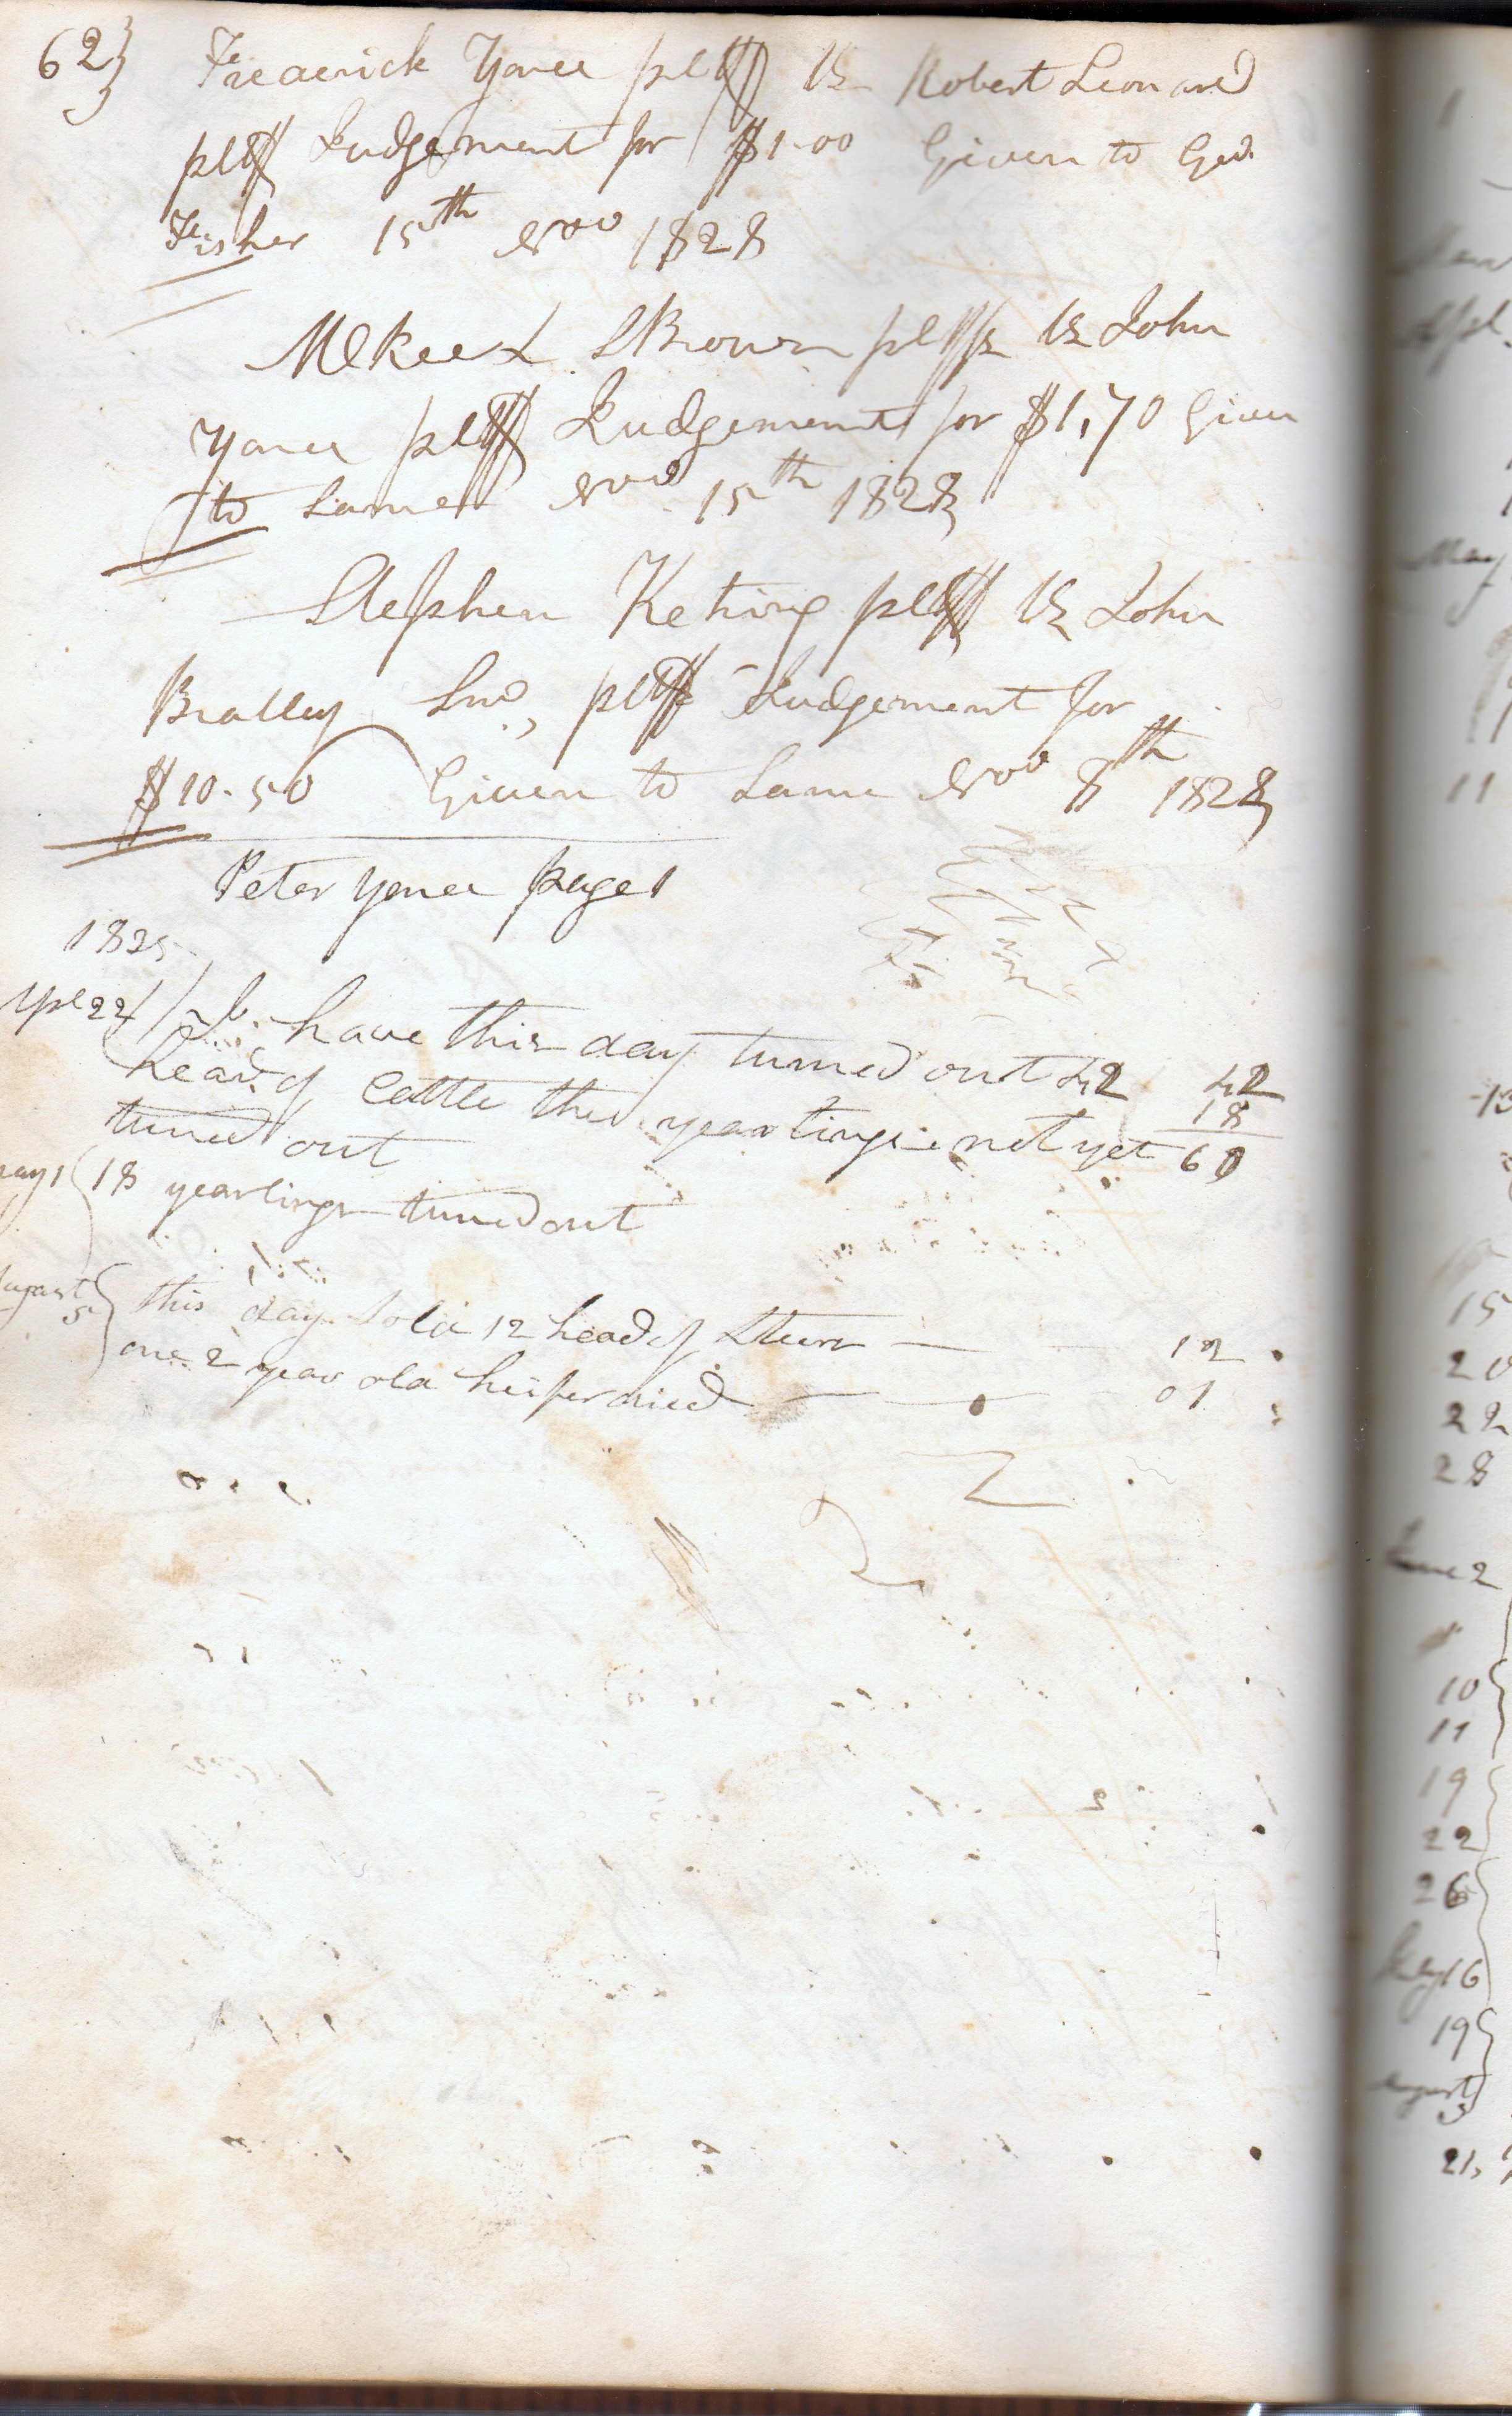 62} Frederick Yonce pltff Vs Robert Leonard
pltff Judgement for $1-00 Given to Geo.
Fisher 15th Nov 1828
McKee & SBrown pltffs Vs John
Yonce pltff Judgement for $1,70 Given
to Same Nov 15th 1828
Stephen Keting pltff Vs John
Bralley Snr, pltff Judgement for
$10-50 Given to Same Nov 8th 1828
Peter Yonce page 1
1825
Apl 22 / I have this day turned out 42 42
head of Cattle the yearlings not yet 18
turned out 60
May 1 18 yearlings turned out
August 5 this day Sold 12 head of Steers — 12
one 2 year old heifer died — 01
11
15
20
22
28
June 2
10
11
19
22
26
July 16
19
August 5
21,